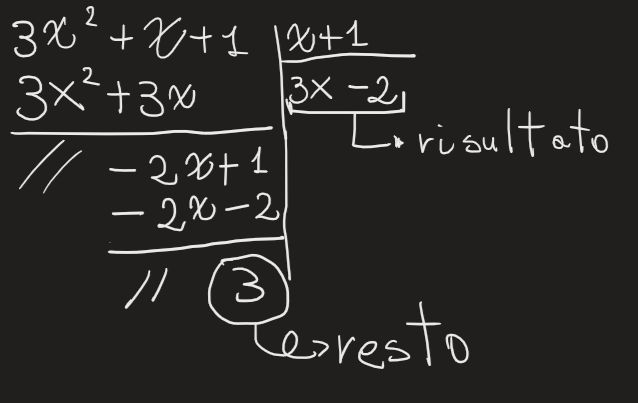 3x² + x + 1 | x + 1
3x² + 3x | 3x - 2
risultato
// - 2x + 1
- 2x - 2
// 3
resto